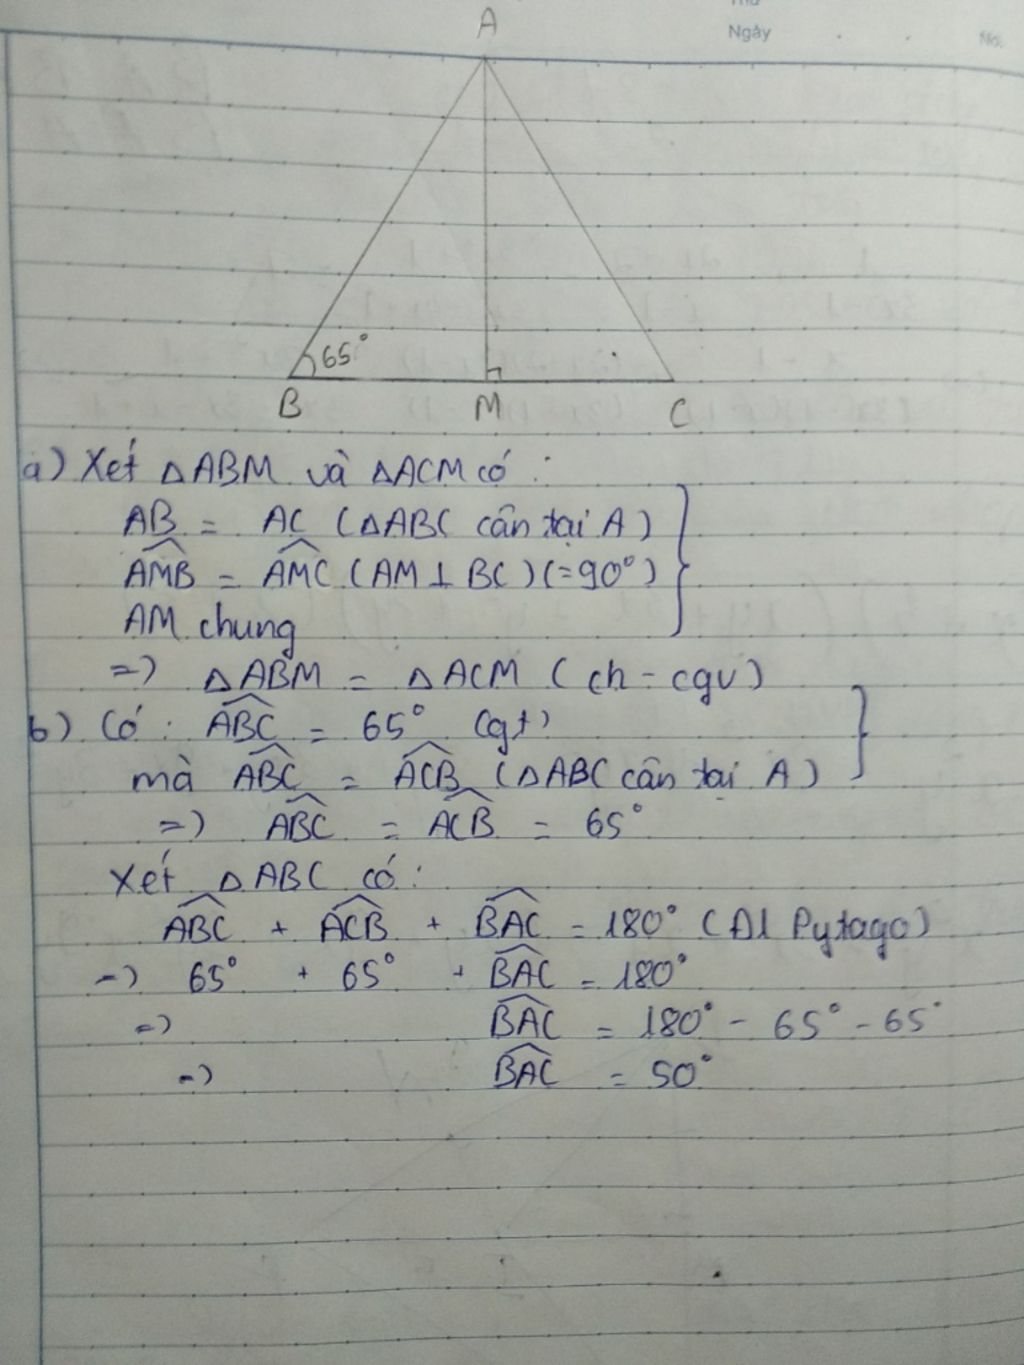 Thứ
Ngày . . No.
A
65°
B M C
a) Xét △ABM và △ACM có :
AB = AC (△ABC cân tại A)
AMB = AMC (AM ⊥ BC) (=90°)
AM chung
=> △ABM = △ACM (ch - cgv)
b) Có : ABC = 65° (gt)
mà ABC = ACB (△ABC cân tại A)
=> ABC = ACB = 65°
Xét △ABC có :
ABC + ACB + BAC = 180° (Đl Pytago)
=> 65° + 65° + BAC = 180°
=> BAC = 180° - 65° - 65°
=> BAC = 50°